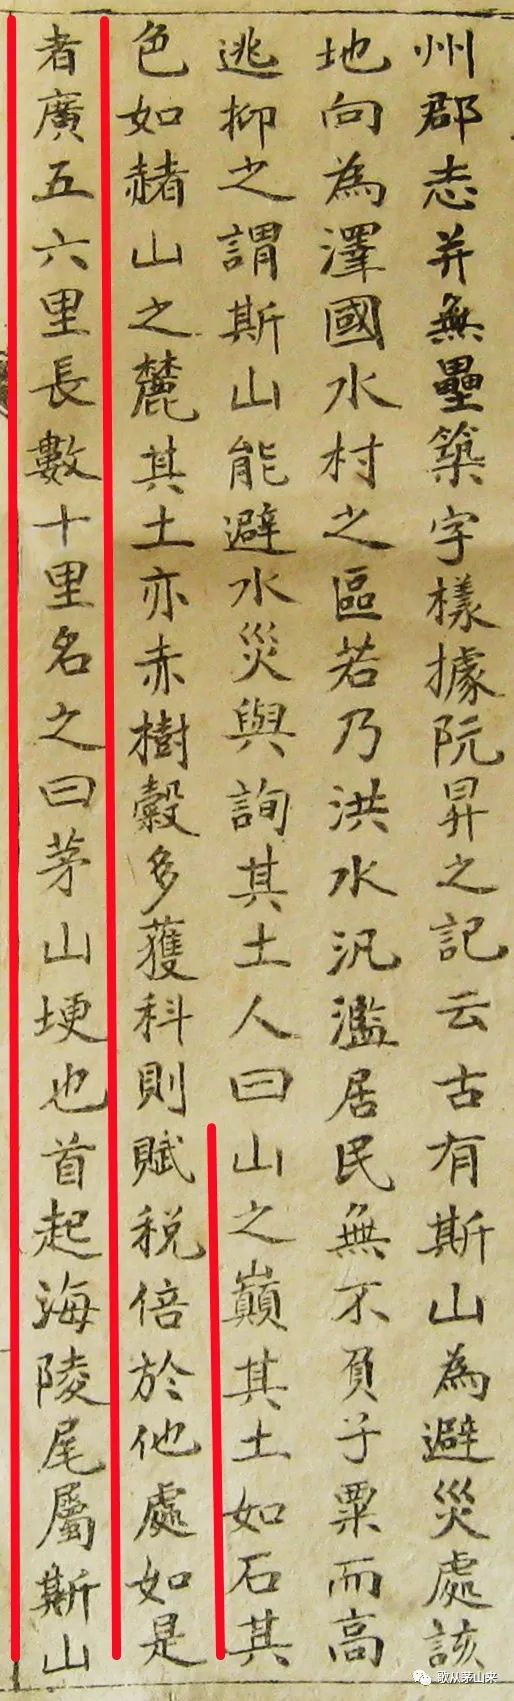 州郡志并無壘築字樣據阮昇之記云古有斯山為避災處該
地向為澤國水村之區若乃洪水汎濫居民無不負子粟而高
逃抑之謂斯山能避水災與詢其土人曰山之巔其土如石其
色如赭山之麓其土亦赤樹穀多獲科則賦税倍於他處如是
者廣五六里長數十里名之曰茅山埂也首起海陵尾屬斯山
歌从茅山来